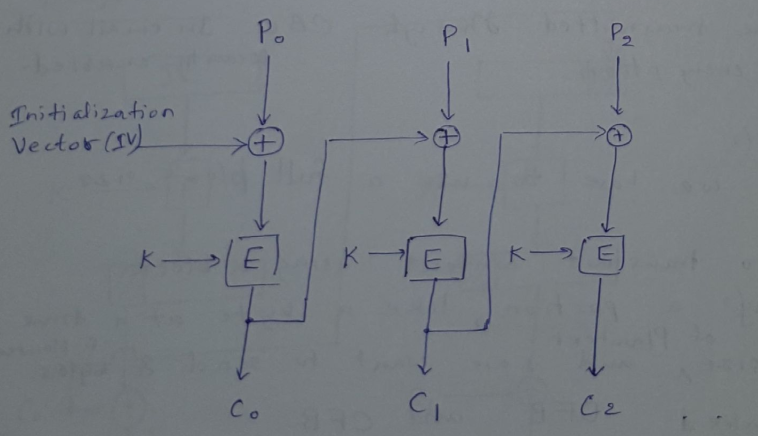 P0 P1 P2
Initialization
Vector (IV) + + +
K E K E K E
C0 C1 C2